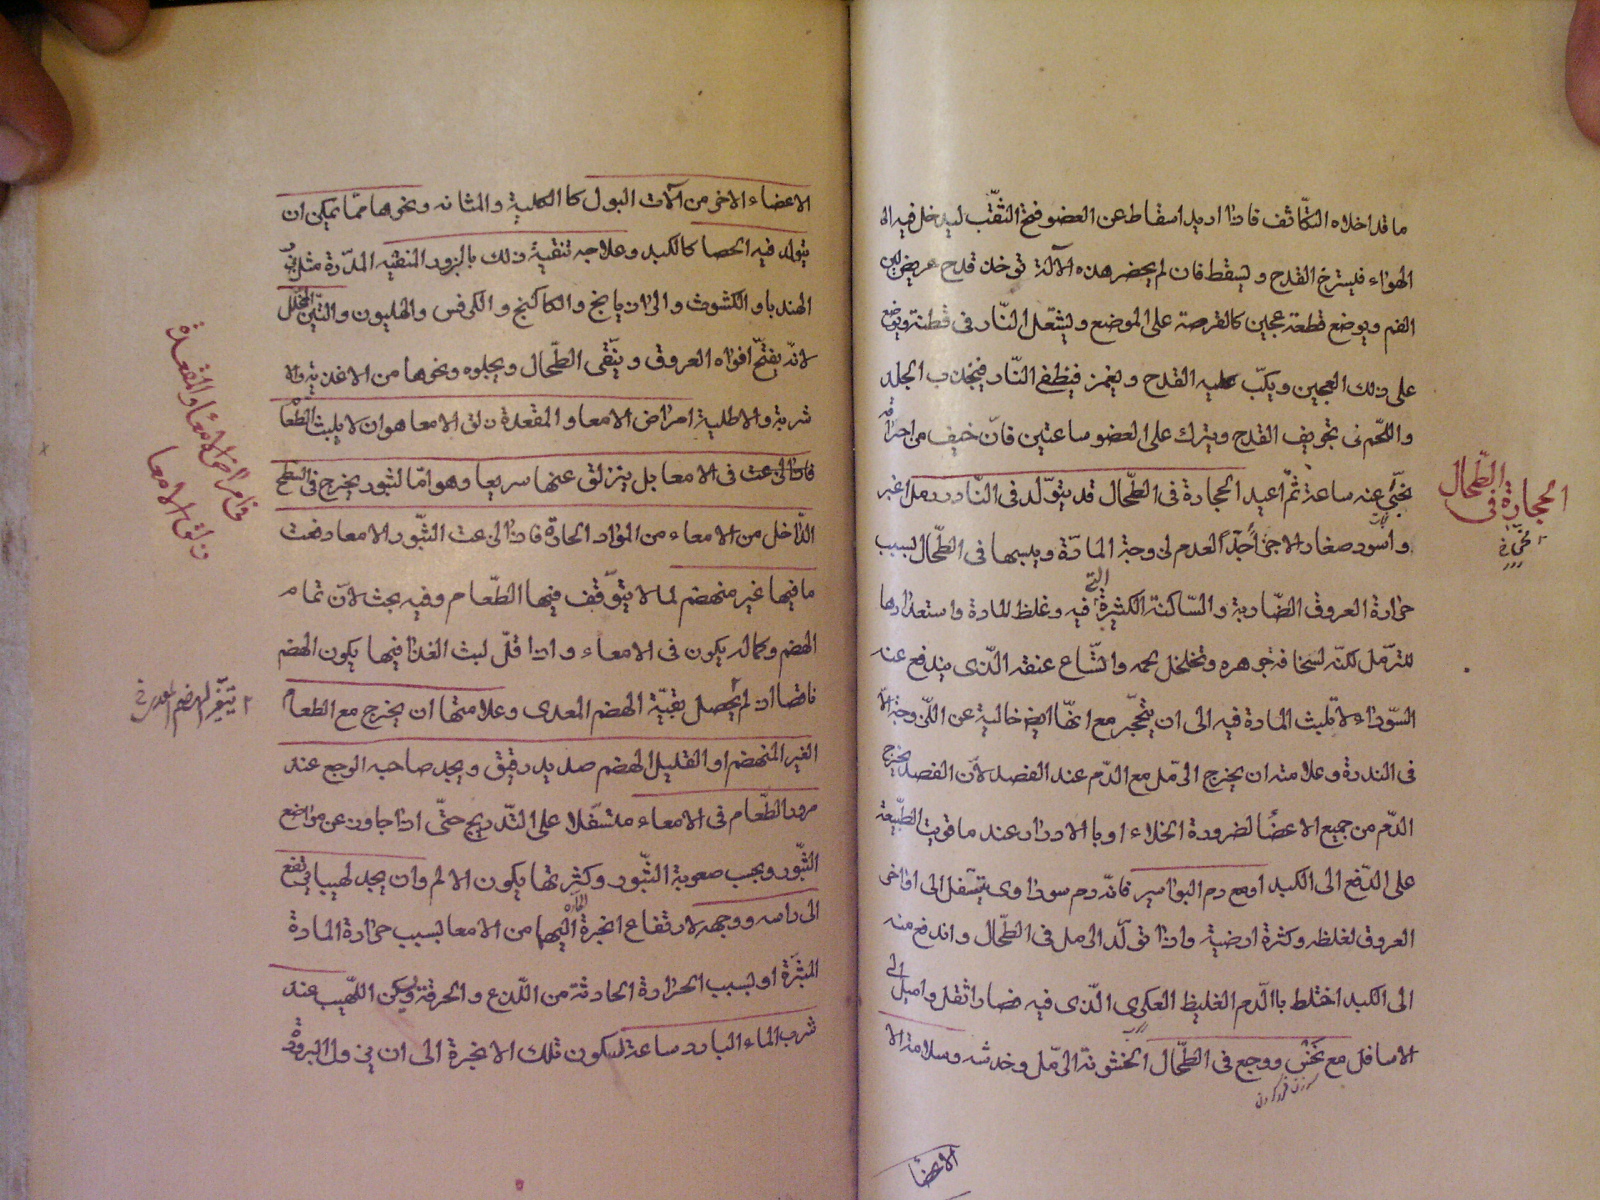 ما قد اخلاه التكاثف فاذا اريد اسقاطه عن العضو فتح الثقب ليدخل فيه اله
الهواء فيسترخ القدح ويسقط فان لم يحضر هذه الآلة توخذ قدح عريض
الفم ويوضع قطعة عجين كالقرصة على الموضع ويشتعل النار في قطنة ويوضع
على ذلك العجين ويكب عليه القدح ويغمز فينطفئ النار فينجذب الجلد
واللحم في تجويف القدح ويترك على العضو ساعتين فان خيف من احراقه
نحي عنه ساعة ثم اعيد الحجارة في الطحال قد يتولد في النادر رمل اغبر
واسود صغار الاجزاء جدا لعدم لزوجة المادة ويبسها في الطحال بسبب
حرارة العروق الضاربة والساكنة الكثيرة التي فيه وغلظ المادة واستعدادها
للترمل لكنه لسخافة جوهره وتخلخل لحمه واتساع عنقه الذي يندفع عنه
السوداء لا تلبث المادة فيه الى ان يتحجر مع انها ايضا خالية عن اللزوجة الا
في الندرة وعلامته ان يخرج الرمل مع الدم عند الفصد لان الفصد يخرج
الدم من جميع الاعضا لضرورة الخلاء او بالادرار عند ما قويت الطبيعة
على الدفع الى الكبد او مع دم البواسير فانه دم سوداوي يتسفل الى افواه
العروق لغلظه وكثرة ارضيته واذا تولد الرمل في الطحال واندفع منه
الى الكبد اختلط بالدم الغليظ العكري الذي فيه فصار اثقل واميل الى
الاسافل مع نخس ووجع في الطحال لخشونة الرمل وخدشه وسلامة الا
الاعضا
الحجارة في الطحال
الاعضاء الاخر من آلات البول كالكلية والمثانه ونحوها مما يمكن ان
يتولد فيه الحصا كالكبد وعلاجه تنقية ذلك بالبزور المنقيه المدرة مثل بزر
الهندبا والكشوث والرازيانج والكاكنج والكرفس والهليون والتين المخلل
لانه يفتح افواه العروق وينقى الطحال ويجلوه ونحوها من الاغذية والا
شربة والاطلية امراض الامعا والمقعدة زلق الامعا هو ان لا يلبث الطعا
في الامعا بل ينزلق عنها سريعا وهو اما لبثور يخرج في السطح
الداخل من الامعاء من المواد الحادة فاذا لذعت البثور الامعا دفعت
ما فيها غير منهضم لما لا يتوقف فيها الطعام وفيه بحث لان تمام
الهضم وكماله يكون في الامعاء واذا قل لبث الغذا فيها يكون الهضم
ناقصا اذ لم يحصل بقية الهضم المعدى وعلامتها ان يخرج مع الطعام
الغير المنهضم او القليل الهضم صديد رقيق ويجد صاحبه الوجع عند
مرور الطعام في الامعاء متسفلا على التدريج حتى اذا جاوز عن مواضع
البثور وبحسب صعوبة البثور وكثرتها يكون الالم وان يجد لهيبا يرتفع
الى راسه ووجهه لارتفاع ابخرة حارة اليهما من الامعا بسبب حرارة المادة
المبثرة او بسبب الحرارة الحادثة من اللذع والحرقة ويسكن اللهيب عند
شرب الماء البارد ساعة لسكون تلك الابخرة الى ان يزول البرودة
في امراض الامعاء والمقعدة
زلق الامعا